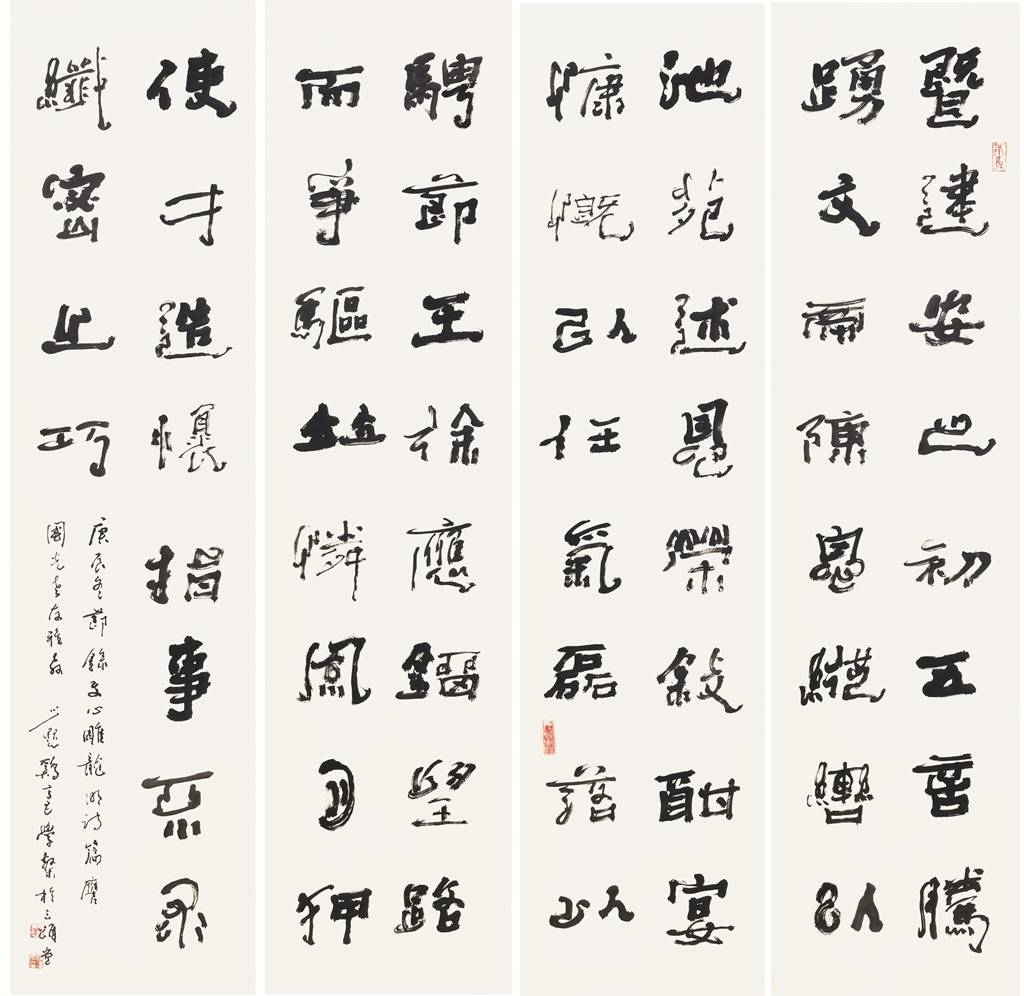 暨建安之初五言騰
踴文帝陳思縱轡以
池苑述恩榮敘酣宴
慷慨以任氣磊落以
騁節王徐應鎦望路
而爭驅並憐風月狎
使才造懷指事不求
纖密之巧
庚辰冬節錄文心雕龍明詩篇應
國光老友雅教 於三頌堂